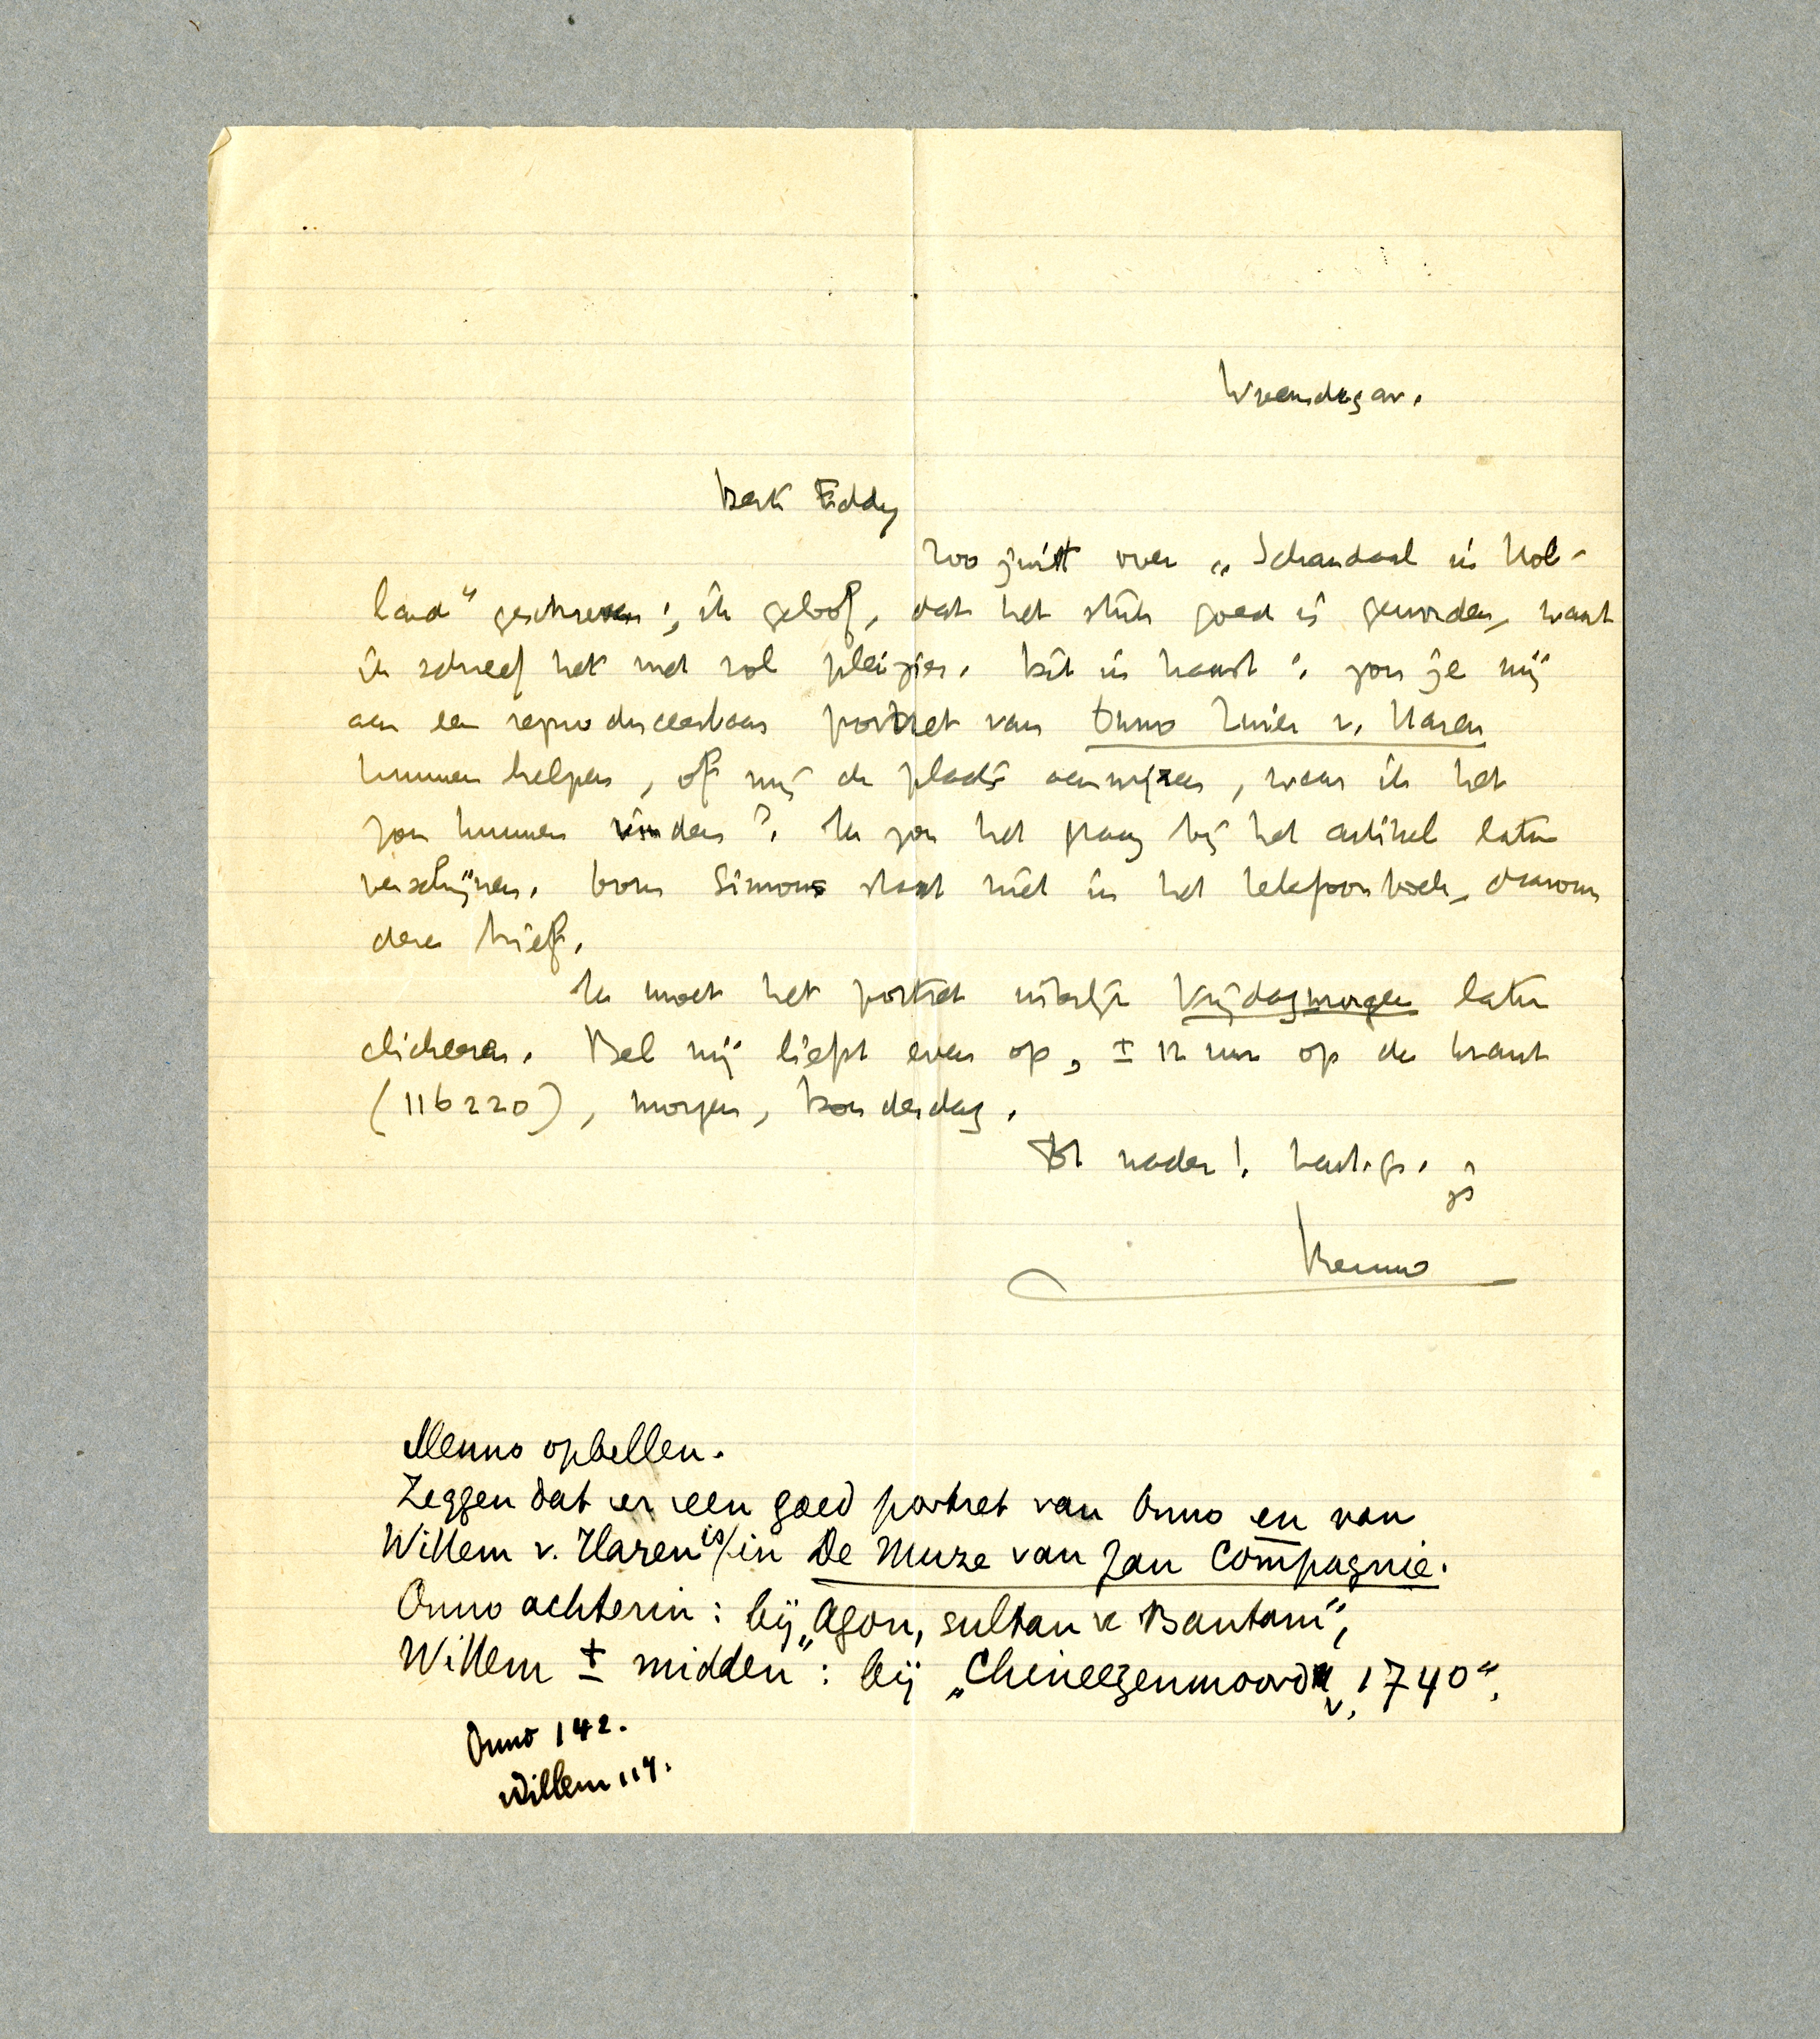 Woensdagav.
Beste Eddy
Zoo juist over „Schandaal in Hol-
land" geschreven; ik geloof, dat het stuk goed is geworden, want
ik schreef het met veel pleizier. Dit in haast: zou je mij
aan een reproduceerbaar portret van Onno Zwier v. Haren
kunnen helpen, of mij de plaats aanwijzen, waar ik het
zou kunnen vinden? Ik zou het graag bij het artikel laten
verschijnen. Simons staat niet in het telefoonboek, daarom
deze brief.
Ik moet het portret uiterlijk Vrijdagmorgen laten
clicheeren. Bel mij liefst even op, ± 12 uur op de krant
(116220), morgen, Donderdag.
Tot nader! hart. gr.
je
Menno
Menno opbellen.
Zeggen dat er een goed portret van Onno en van
Willem v. Haren is/in De Muze van Jan Compagnie.
Onno achterin: bij „Agon, sultan v Bantam",
Willem ± midden: bij „Chineezenmoord v. 1740".
Onno 142.
Willem 117.